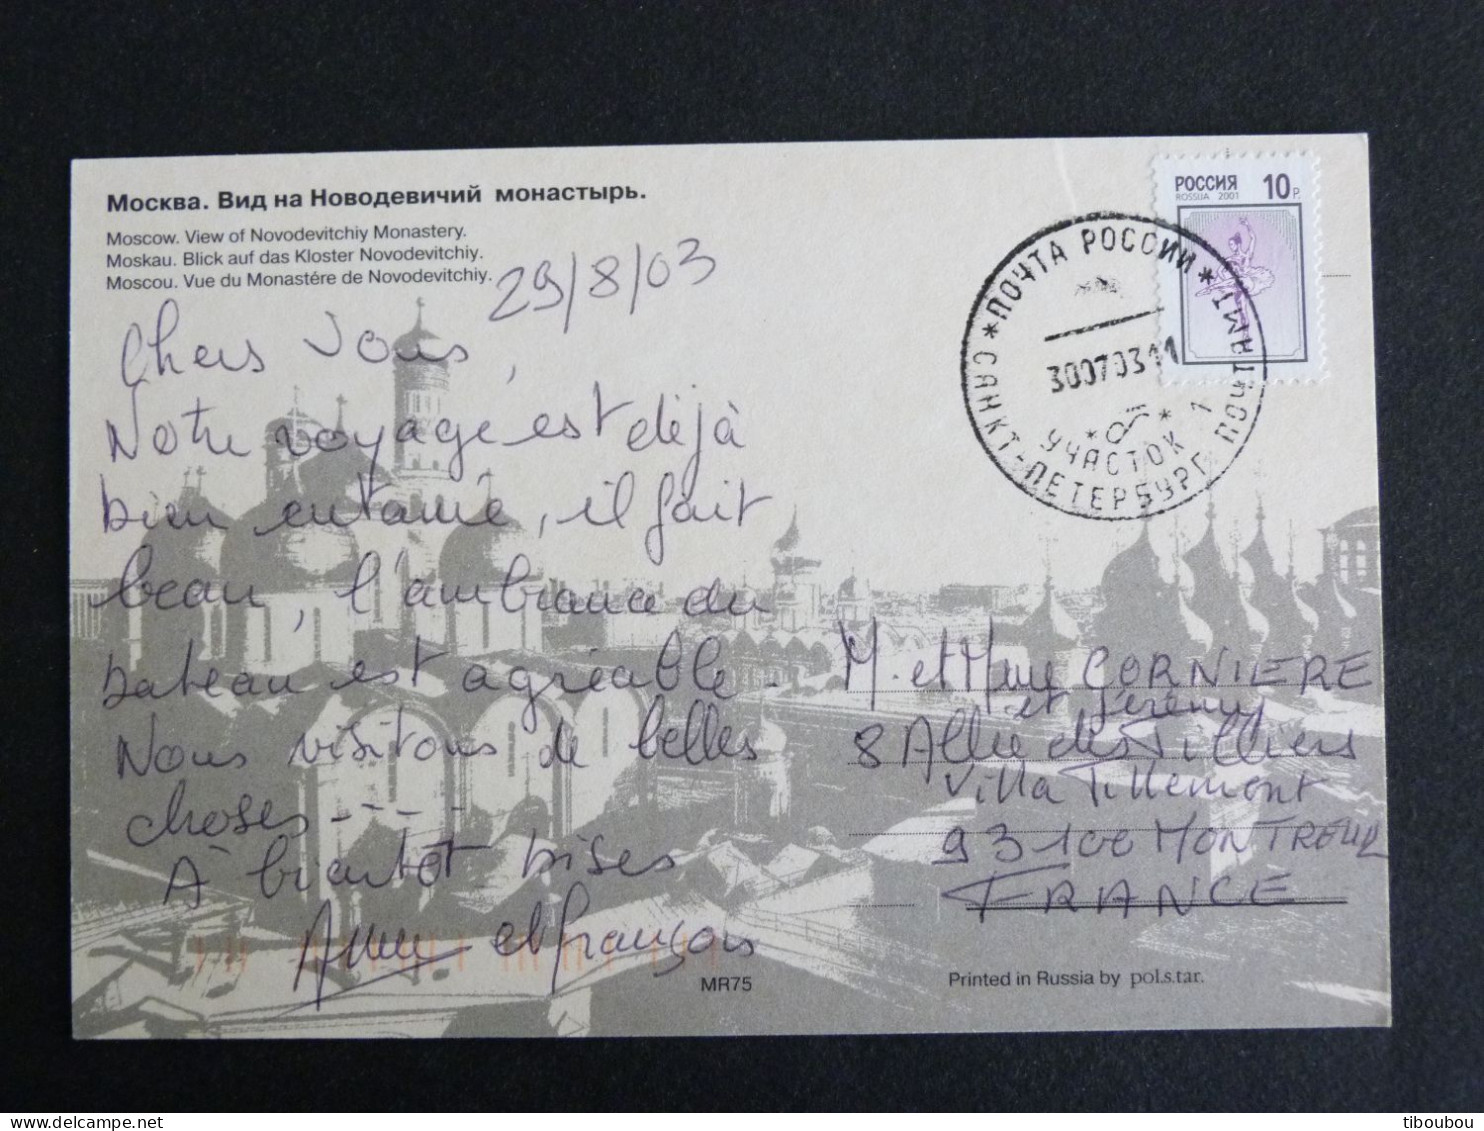 Москва. Вид на Новодевичий монастырь.
Moscow. View of Novodevitchiy Monastery.
Moskau. Blick auf das Kloster Novodevitchiy.
Moscou. Vue du Monastére de Novodevitchiy.
29/8/03
Chers Vous,
Notre voyage est déjà
bien entamé, il fait
beau, l'ambiance du
bateau est agréable
Nous visitons de belles
choses ----
A bientôt bises
Anny et François
РОССИЯ 10 р.
ROSSIJA 2001
* ПОЧТА РОССИИ *
30070311
УЧАСТОК 1
САНКТ-ПЕТЕРБУРГ ПОЧТАМТ
M. et Mme CORNIERE
et Jérémy
8 Allée des Tilliers
Villa Tillemont
93100 MONTREUIL
FRANCE
MR75
Printed in Russia by pol.s.tar.
tiboubou